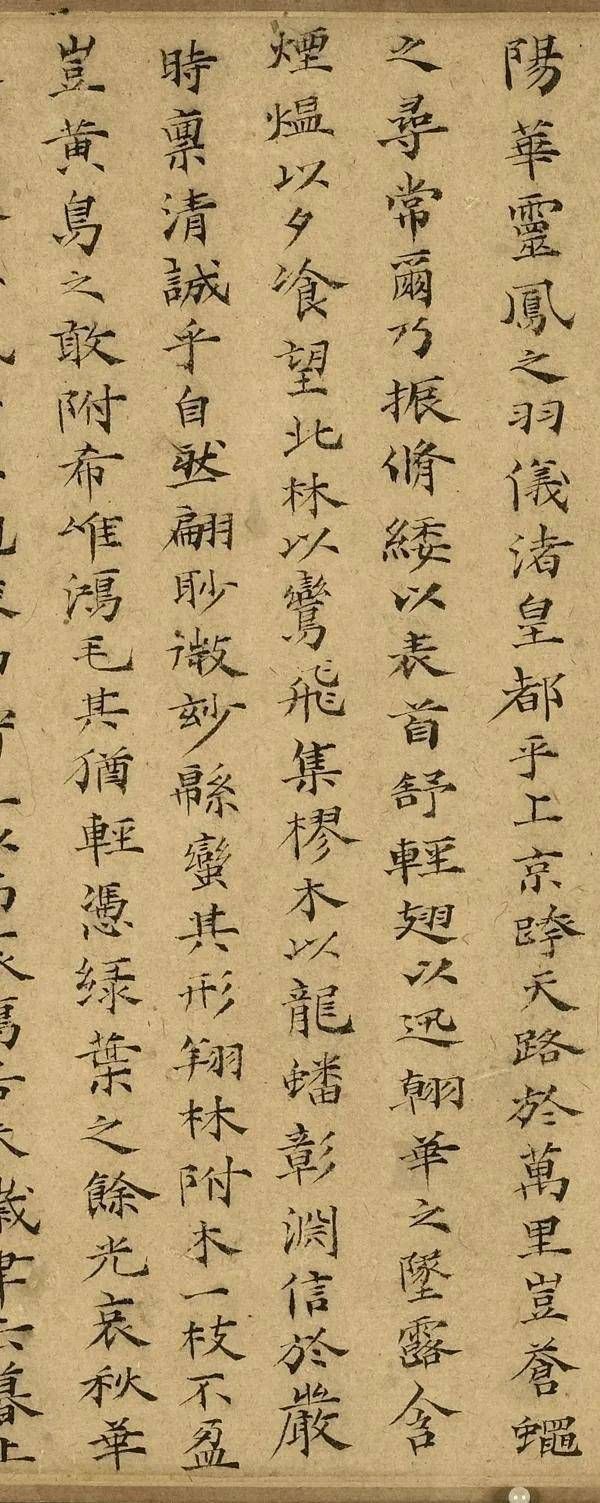 陽華靈鳳之羽儀渚皇都乎上京跨天路於萬里豈蒼蠅
之尋常爾乃振脩緌以表首舒輕翅以迅翰華之墜露含
煙熅以夕飡望北林以鸞飛集樛木以龍蟠彰淵信於嚴
時稟清誠乎自然翩眇微玅緜蠻其形翔林附木一枝不盈
豈黃鳥之敢附希唯鴻毛其猶輕憑緑葉之餘光哀秋華